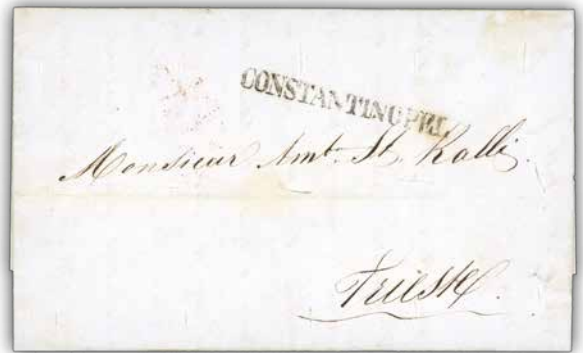 CONSTANTINOPEL
Monsieur Amb. St. Ralli.
Trieste.